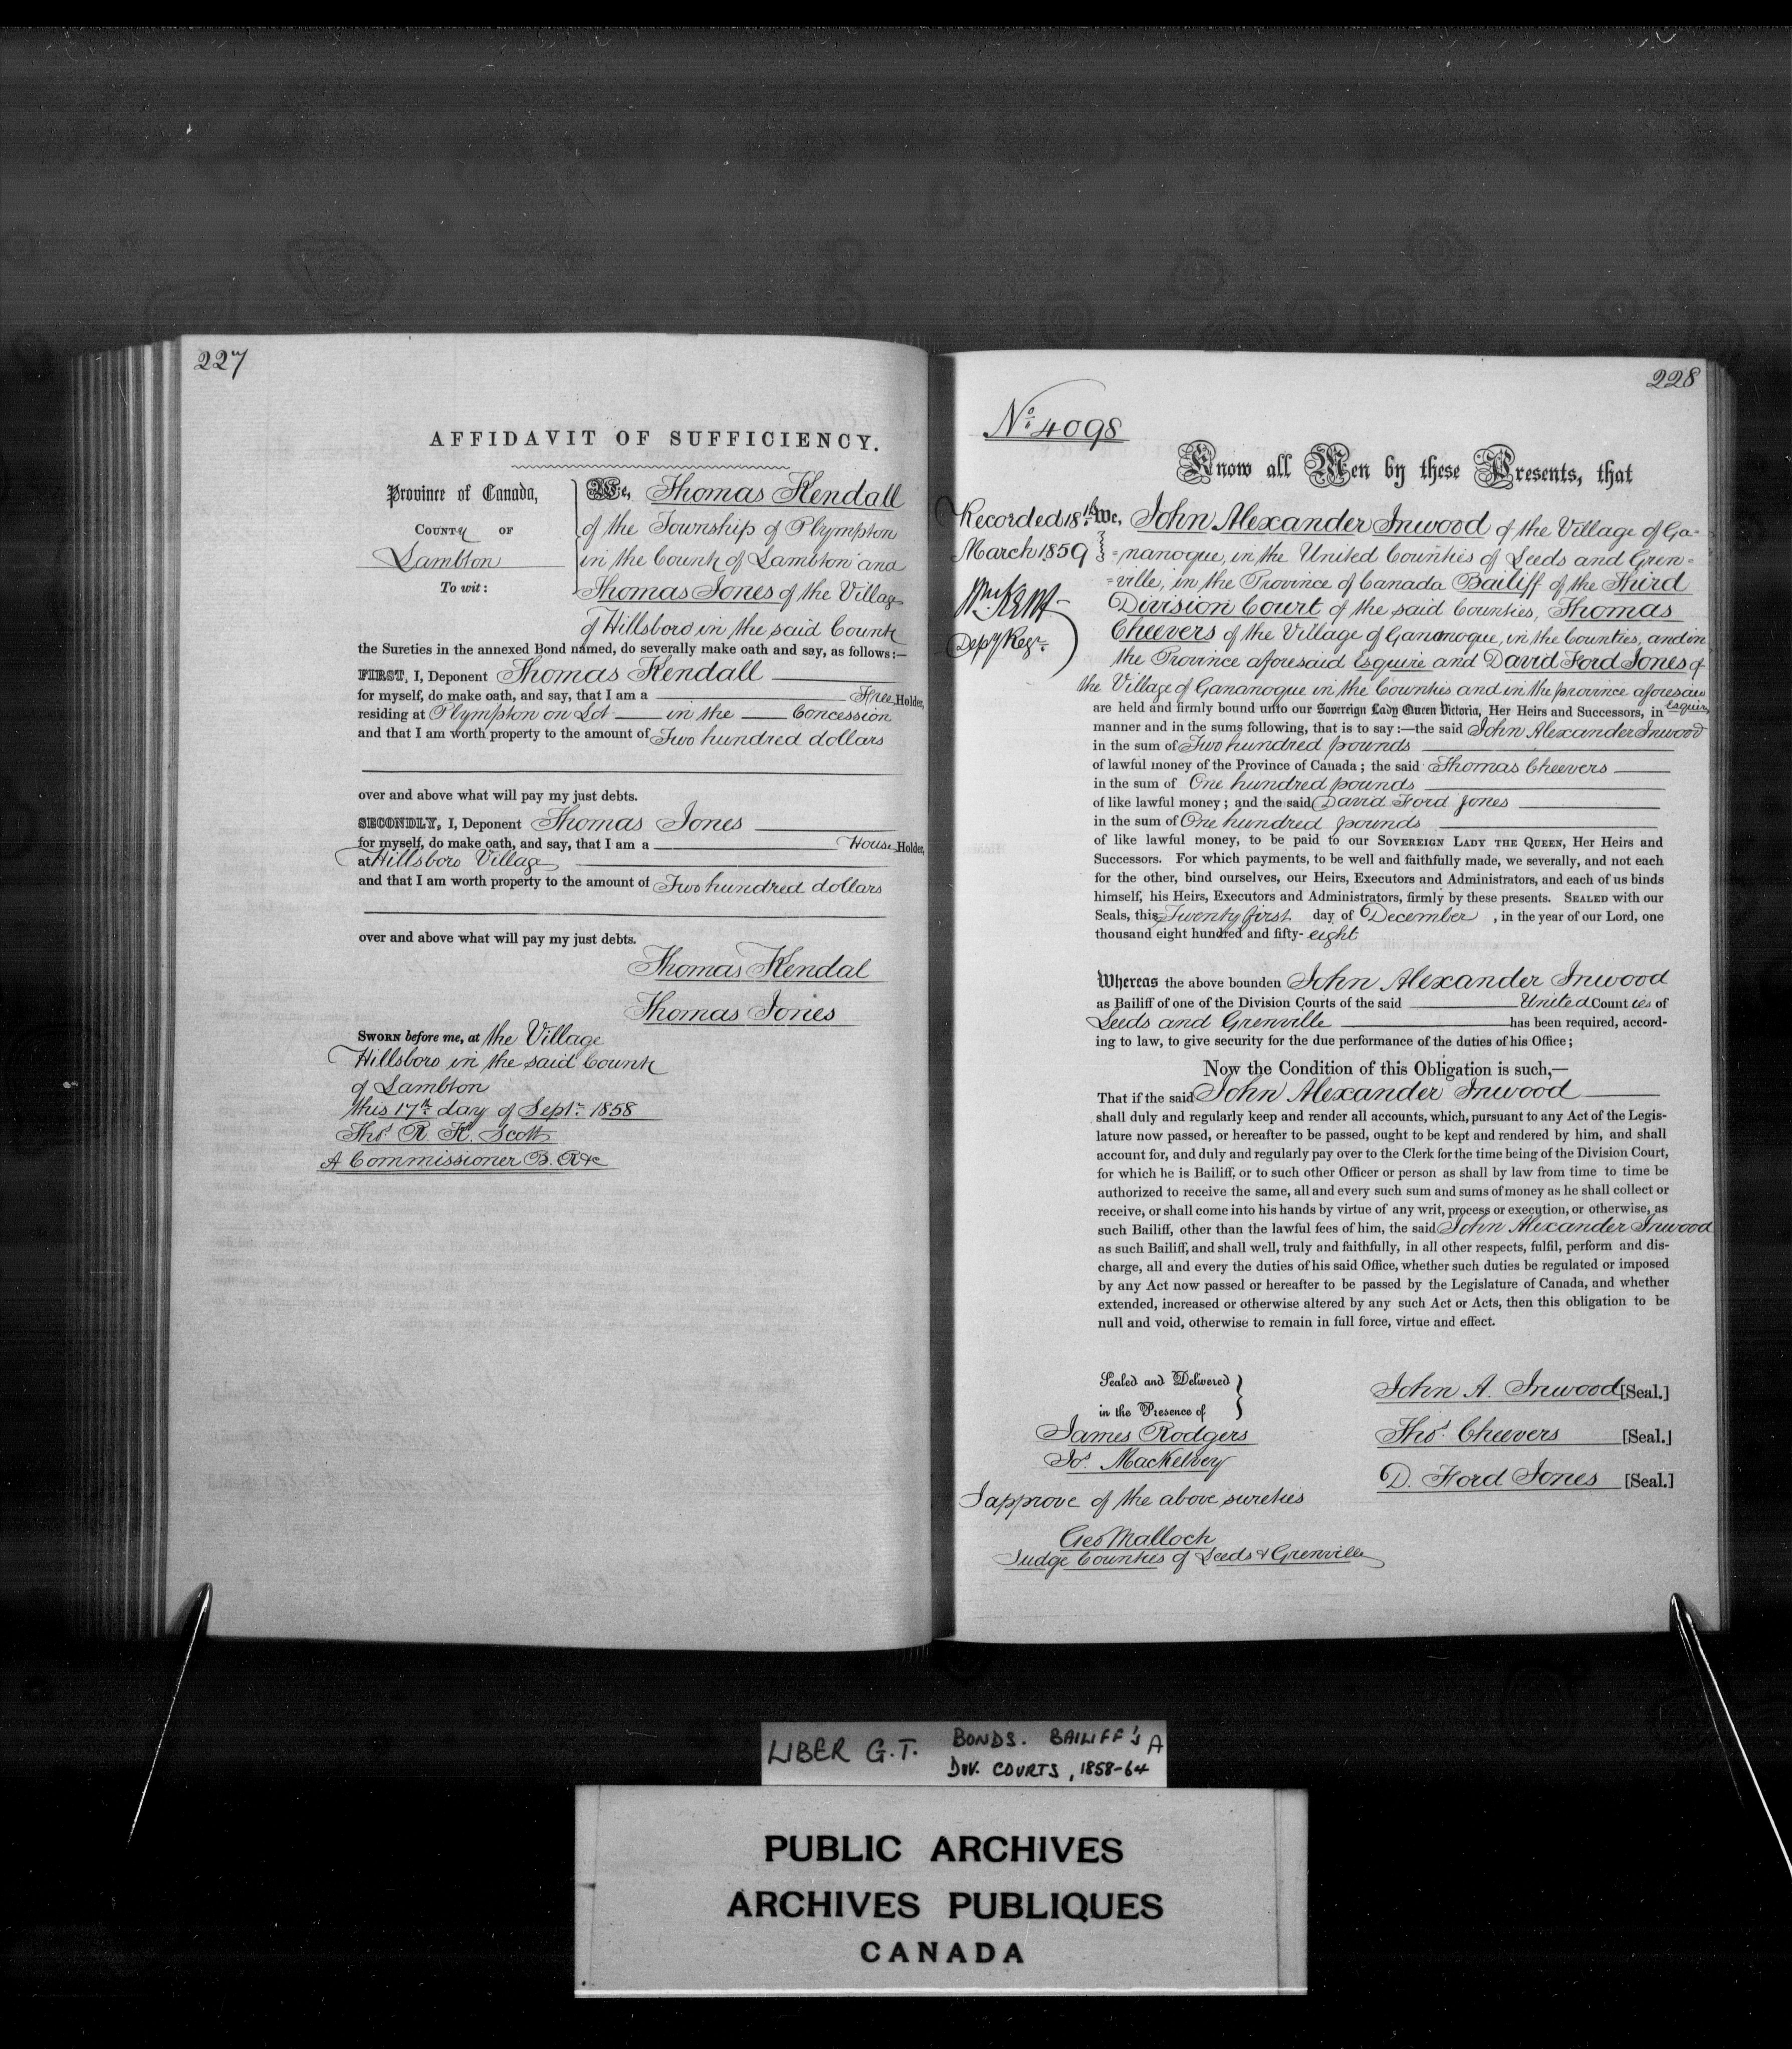 227
AFFIDAVIT OF SUFFICIENCY.
Province of Canada,
County of
Lambton
To wit:
We, Thomas Kendall
of the Township of Plympton
in the County of Lambton and
Thomas Jones of the Village
of Hillsboro in the said County
the Sureties in the annexed Bond named, do severally make oath and say, as follows:—
FIRST, I, Deponent Thomas Kendall
for myself, do make oath, and say, that I am a Free Holder,
residing at Plympton on Lot in the Concession
and that I am worth property to the amount of Two hundred dollars
over and above what will pay my just debts.
SECONDLY, I, Deponent Thomas Jones
for myself, do make oath, and say, that I am a House Holder,
at Hillsboro Village
and that I am worth property to the amount of Two hundred dollars
over and above what will pay my just debts.
Thomas Kendal
Thomas Jones
Sworn before me, at the Village
Hillsboro in the said County
of Lambton
this 17th day of Sept. 1858
Thos. R. K. Scott
A Commissioner B. R &c
228
No. 4098
Know all Men by these Presents, that
Recorded 18th
March 1859
Depy Regr.
We, John Alexander Inwood of the Village of Ga-
=nanoque, in the United Counties of Leeds and Gren=
=ville, in the Province of Canada Bailiff of the Third
Division Court of the said Counties, Thomas
Cheevers of the Village of Gananoque, in the Counties, and in
the Province aforesaid Esquire and David Ford Jones of
the Village of Gananoque in the Counties and in the province aforesaid
Esquire
are held and firmly bound unto our Sovereign Lady Queen Victoria, Her Heirs and Successors, in
manner and in the sums following, that is to say:—the said John Alexander Inwood
in the sum of Two hundred pounds
of lawful money of the Province of Canada; the said Thomas Cheevers
in the sum of One hundred pounds
of like lawful money; and the said David Ford Jones
in the sum of One hundred pounds
of like lawful money, to be paid to our Sovereign Lady the Queen, Her Heirs and
Successors. For which payments, to be well and faithfully made, we severally, and not each
for the other, bind ourselves, our Heirs, Executors and Administrators, and each of us binds
himself, his Heirs, Executors and Administrators, firmly by these presents. Sealed with our
Seals, this Twenty first day of December , in the year of our Lord, one
thousand eight hundred and fifty-eight
Whereas the above bounden John Alexander Inwood
as Bailiff of one of the Division Courts of the said United Counties of
Leeds and Grenville has been required, accord-
ing to law, to give security for the due performance of the duties of his Office;
Now the Condition of this Obligation is such,—
That if the said John Alexander Inwood
shall duly and regularly keep and render all accounts, which, pursuant to any Act of the Legis-
lature now passed, or hereafter to be passed, ought to be kept and rendered by him, and shall
account for, and duly and regularly pay over to the Clerk for the time being of the Division Court,
for which he is Bailiff, or to such other Officer or person as shall by law from time to time be
authorized to receive the same, all and every such sum and sums of money as he shall collect or
receive, or shall come into his hands by virtue of any writ, process or execution, or otherwise, as
such Bailiff, other than the lawful fees of him, the said John Alexander Inwood
as such Bailiff, and shall well, truly and faithfully, in all other respects, fulfil, perform and dis-
charge, all and every the duties of his said Office, whether such duties be regulated or imposed
by any Act now passed or hereafter to be passed by the Legislature of Canada, and whether
extended, increased or otherwise altered by any such Act or Acts, then this obligation to be
null and void, otherwise to remain in full force, virtue and effect.
Sealed and Delivered
in the Presence of
James Rodgers
Jos. Mackelvey
John A. Inwood [Seal.]
Thos. Cheevers [Seal.]
D. Ford Jones [Seal.]
I approve of the above sureties
Geo Malloch
Judge Counties of Leeds & Grenville
LIBER G.T. BONDS. BAILIFF'S A
DIV. COURTS, 1858-64
PUBLIC ARCHIVES
ARCHIVES PUBLIQUES
CANADA